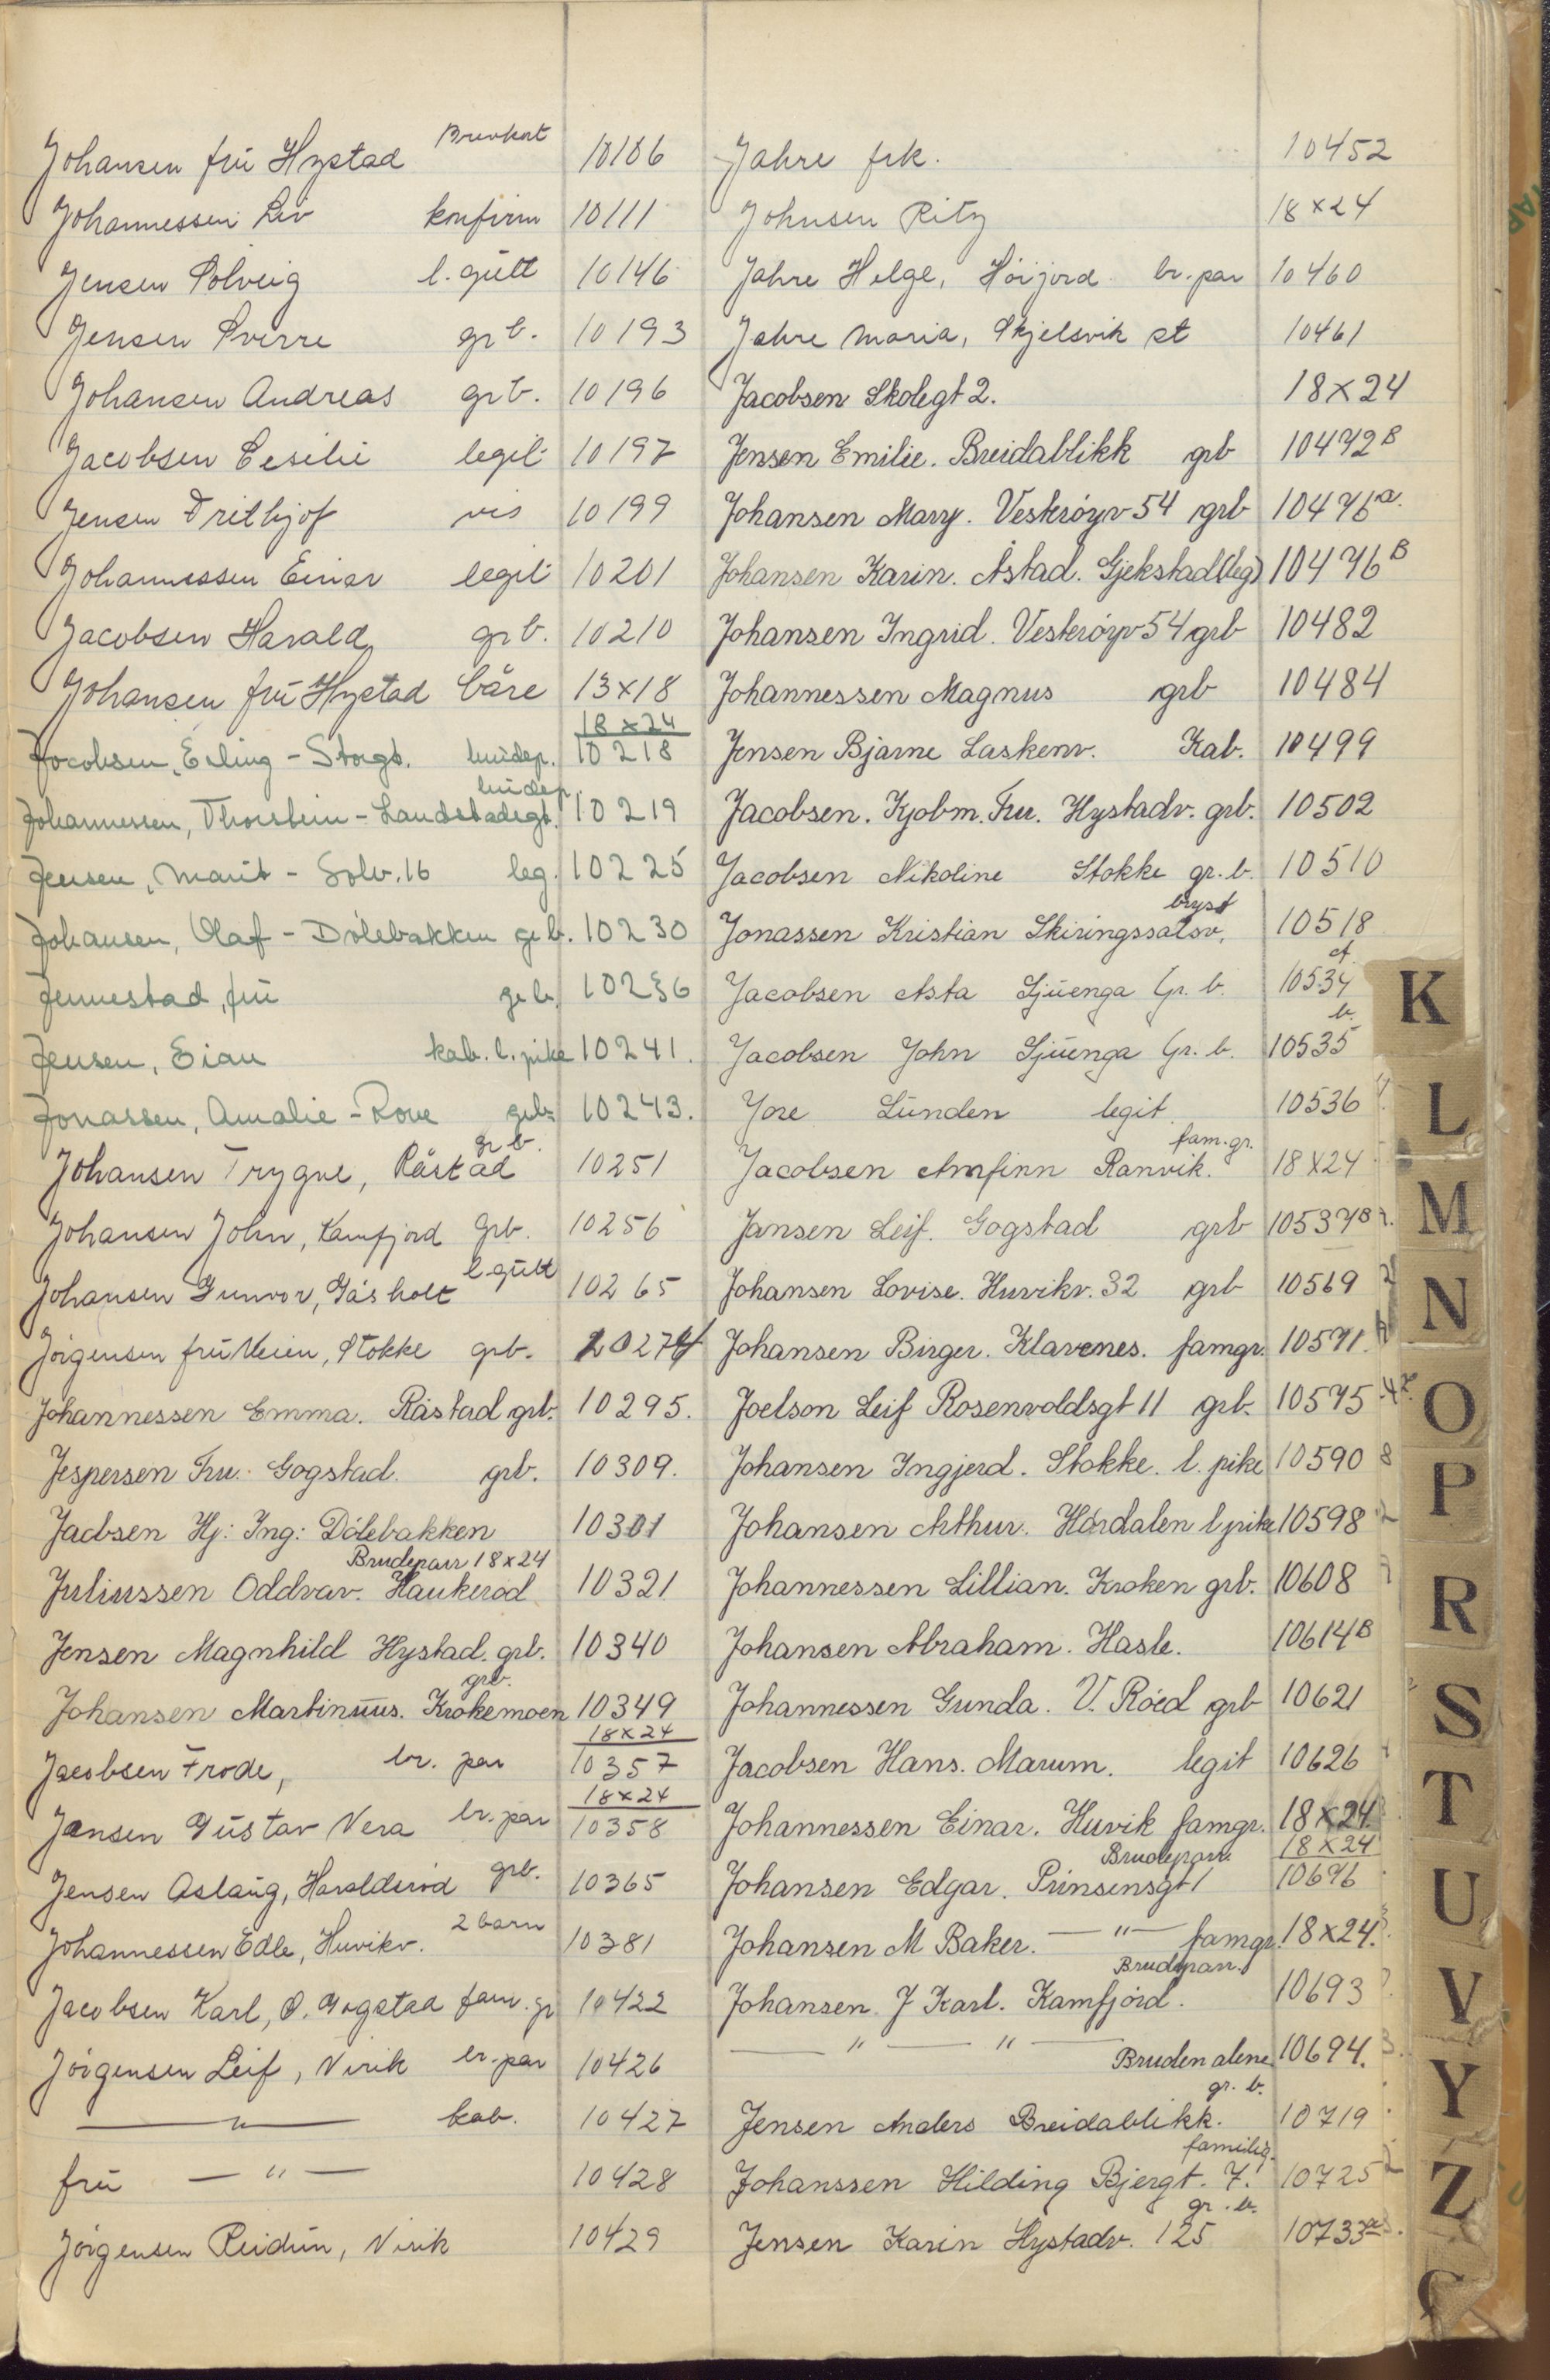 Johansen frü Hystad Brevkort 10106
Johannessen Liv konfirm 10111
Jensen Solveig l. gütt 10146
Jensen Sverre gr b. 10193
Johansen Andreas gr b. 10196
Jacobsen Cesilie legit 10197
Jensen Frithjof vis 10199
Johannessen Einar legit 10201
Jacobsen Harald gr b. 10210
Johansen frü Hystad båre 13x18
Jocobsen, Erling - Storgt. brüdep. 18x24 10218
Johannessen, Thorstein - Landstadsgt. brüdep. 10219
Jensen, Marit - Solv. 16 leg. 10225
Johansen, Olaf - Dölebakken gr b. 10230
Jennestad, frü gr b. 10236
Jensen, Eian kab. l. pike 10241.
Jonassen, Amalie - Rove grb 10243.
Johansen Trygve, Råstad gr b. 10251
Johansen John, Kamfjord Grb. 10256
Johansen Gunvor, Gåsholt l. gütt 10265
Jörgensen frü Veien, Stokke grb. 10274
Johannessen Emma. Råstad grb. 10295.
Jespersen Fru. Gogstad. grb. 10309.
Jacbsen Hj: Ing: Dölebakken 10301
Juliussen Oddvar. Haukeröd Brudeparr 18x24 10321
Jensen Magnhild Hystad. grb. 10340
Johansen Martinuus. Krokemoen grb. 10349
Jacobsen Frode, br. par 18x24 10357
Jansen Güstav Vera br. par 18x24 10358
Jensen Aslaüg, Haraldsröd grb. 10365
Johannessen Edle, Huvikv. 2 barn 10381
Jacobsen Karl, Ö. Gogstad fam. gr 10422
Jörgensen Leif, Virik br. par 10426
— " — kab. 10427
frü — " — 10428
Jörgensen Reidün, Virik 10429
Jahre frk. 10452
Johnsen Ritz 18x24
Jahre Helge, Höijord br. par 10460
Jahre Maria, Skjelsvik st 10461
Jacobsen Skolegt 2. 18x24
Jensen Emilie. Breidablikk grb 10472 B
Johansen Mary. Vesteröyv 54 grb 10476 a.
Johansen Karin. Åstad. Gjekstad (leg) 10476 B
Johansen Ingrid. Vesteröyv 54 grb 10482
Johannessen Magnus grb 10484
Jensen Bjarne Laskenv. Kab. 10499
Jacobsen. Kjobm. Fru. Hystadv. grb. 10502
Jacobsen Nikoline Stokke gr. b. 10510
Jonassen Kristian Skiringssalsv. bryst 10518
Jacobsen Asta Sjüenga Gr. b. 10534 A
Jacobsen John Sjüenga Gr. b. 10535 b.
Jore Lünden legit 10536
Jacobsen Arnfinn Ranvik. fam. gr. 18x24
Jansen Leif. Gogstad grb 10537 B
Johansen Lovise. Huvikv. 32 grb 10569
Johansen Birger. Klavenes. famgr. 10571.
Joelson Leif Rosenvoldsgt 11 grb. 10575
Johansen Ingjerd. Stokke. l. pike 10590
Johansen Arthur. Hårdalen l pike 10598
Johannessen Lillian. Kroken grb. 10608
Johansen Abraham. Hasle. 10614 B
Johannessen Gunda. V. Röed grb 10621
Jacobsen Hans. Marum. legit 10626
Johannessen Einar. Huvik famgr. 18x24
Johansen Edgar. Prinsensgt 1 Brudeparr. 18x24 10676
Johansen M Baker. — " — famgr. 18x24.
Johansen J Karl. Kamfjörd. Brudeparr. 10693
— " — " — Bruden alene. 10694.
Jensen Anders Breidablikk. gr. b. 10719
Johanssen Hilding Bjergt. 7. familig. 10725
Jensen Karin Hystadv. 125 gr. b. 10733 a
K
L
M
N
O
P
R
S
T
U
V
Y
Z